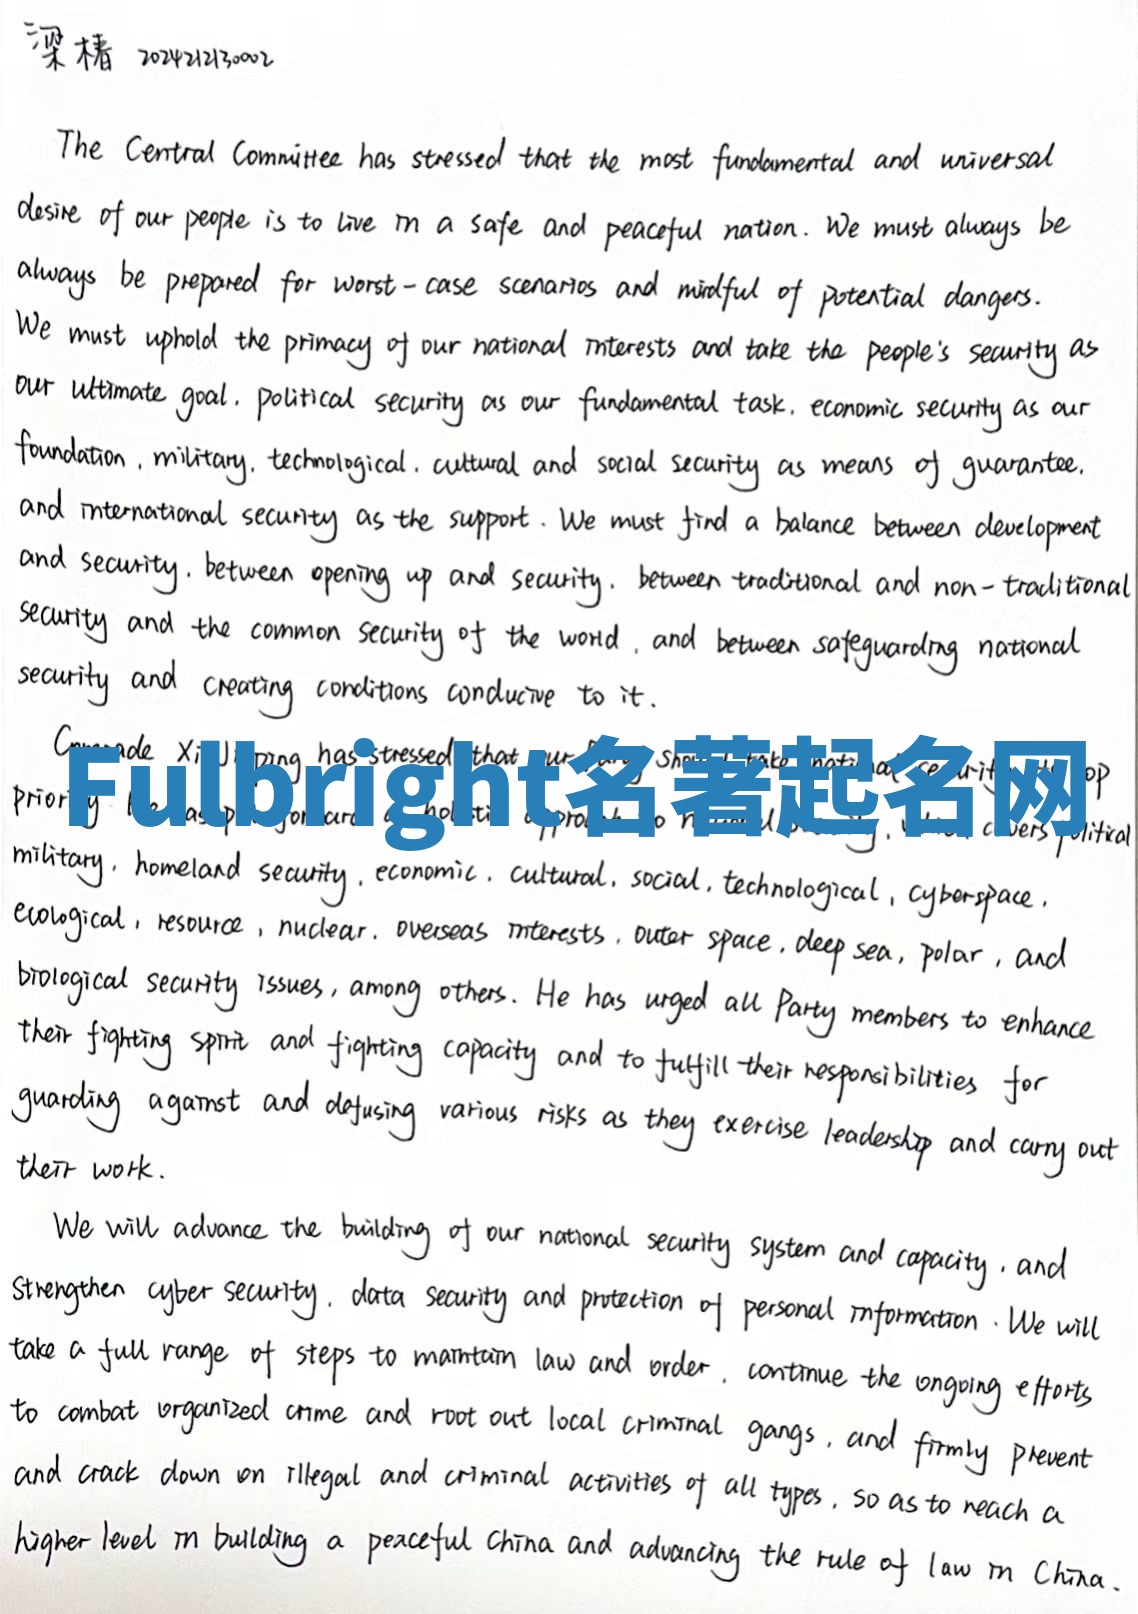 梁椿 2024212130002
The Central Committee has stressed that the most fundamental and universal
desire of our people is to live in a safe and peaceful nation. We must always be
always be prepared for worst-case scenarios and mindful of potential dangers.
We must uphold the primacy of our national interests and take the people's security as
our ultimate goal, political security as our fundamental task, economic security as our
foundation, military, technological, cultural and social security as means of guarantee,
and international security as the support. We must find a balance between development
and security, between opening up and security, between traditional and non-traditional
security and the common security of the world, and between safeguarding national
security and creating conditions conducive to it.
Comrade Xi Jinping has stressed that our Party should take national security top
Fulbright名著起名网
priority. He has put forward a holistic approach to national security, which covers political
military, homeland security, economic, cultural, social, technological, cyberspace,
ecological, resource, nuclear, overseas interests, outer space, deep sea, polar, and
biological security issues, among others. He has urged all Party members to enhance
their fighting spirit and fighting capacity and to fulfill their responsibilities for
guarding against and defusing various risks as they exercise leadership and carry out
their work.
We will advance the building of our national security system and capacity, and
strengthen cyber security, data security and protection of personal information. We will
take a full range of steps to maintain law and order, continue the ongoing efforts
to combat organized crime and root out local criminal gangs, and firmly prevent
and crack down on illegal and criminal activities of all types, so as to reach a
higher level in building a peaceful China and advancing the rule of law in China.